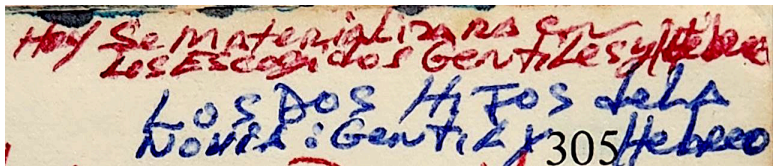 Hoy Se Materializara en
Los Escogidos Gentiles y Hebreo
Los Dos Hijos de La
Novia: Gentil y Hebreo
305